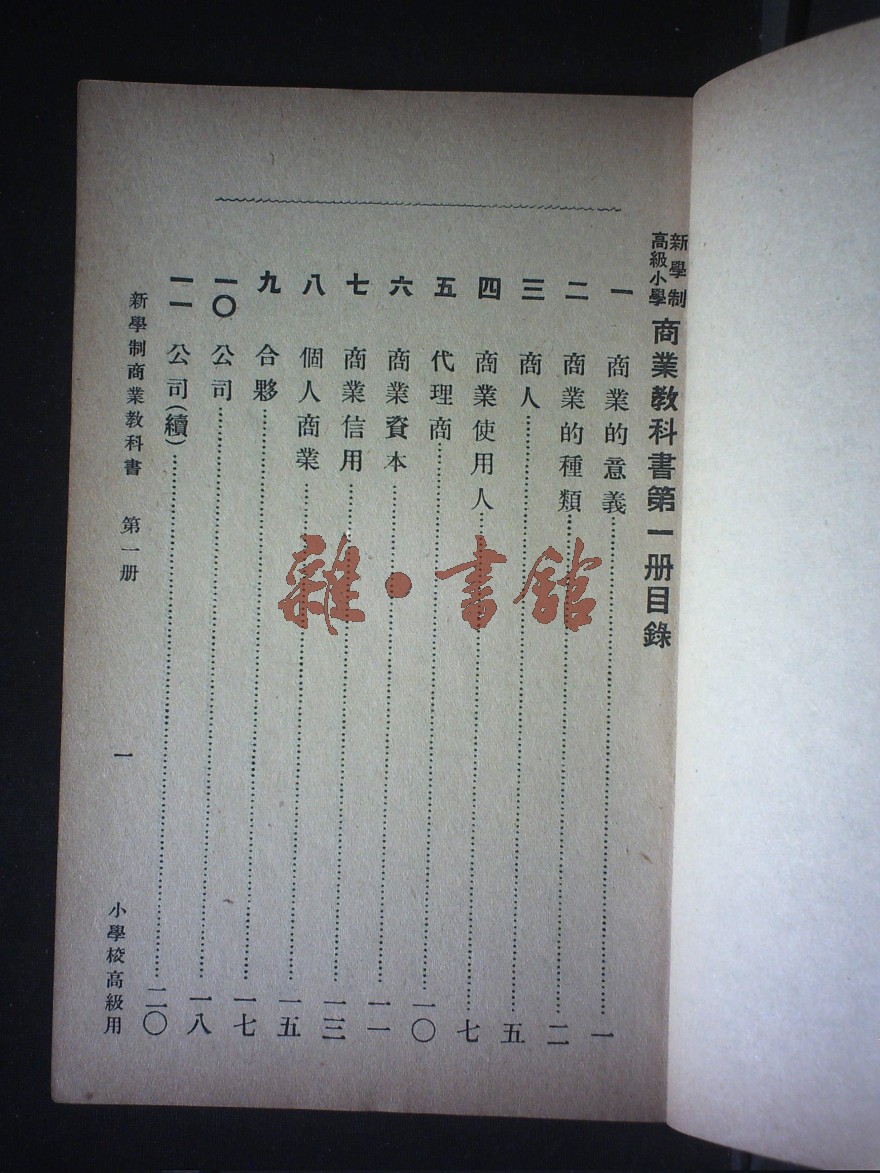 新學制
高級小學
商業教科書第一册目錄
一 商業的意義……一
二 商業的種類……二
三 商人……五
四 商業使用人……七
五 代理商……一〇
六 商業資本……一一
七 商業信用……一三
八 個人商業……一五
九 合夥……一七
一〇 公司……一八
一一 公司(續)……二〇
新學制商業教科書 第一册 一 小學校高級用
雜·書館